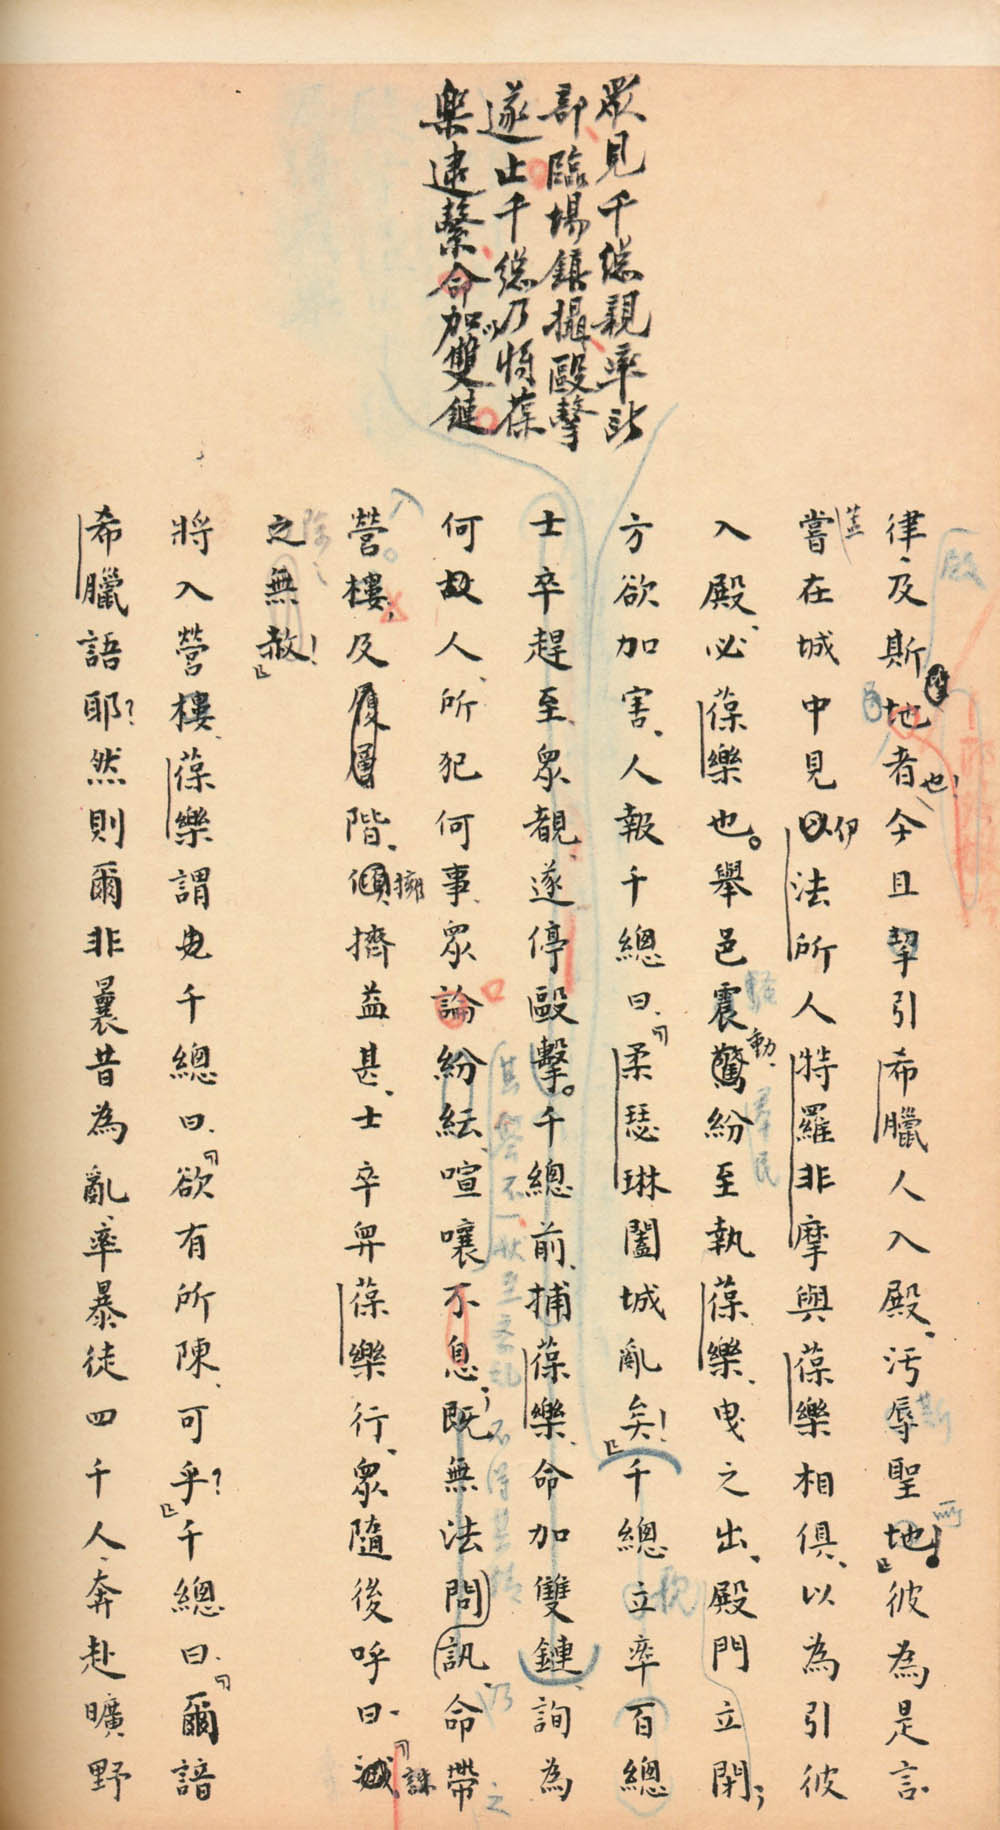 眾見千總親率所
部臨場鎮攝毆擊
遂止千總乃將葆
樂逮繫命加以雙鏈
律、及斯地者也!今且挈引希臘人入殿、汚辱聖地!」彼為是言、
蓋嘗在城中見伊法所人特羅非摩與葆樂相俱、以為引彼
入殿、必葆樂也。舉邑震驚動、紛至執葆樂、曳之出、殿門立閉;
方欲加害、人報千總曰、「柔瑟琳闔城亂矣!」千總立率百總
士卒趕至、眾覩、遂停毆擊。千總前、捕葆樂、命加雙鏈、詢為
何故人、所犯何事、眾論紛紜、喧嚷不息;既無法問訊、命帶
入營樓、及階、擁擠益甚、士卒舁葆樂行、眾隨後呼曰、「誅
之無赦!」
將入營樓、葆樂謂千總曰、「欲有所陳、可乎?」千總曰、「爾諳
希臘語耶?然則爾非曩昔為亂、率暴徒四千人、奔赴曠野